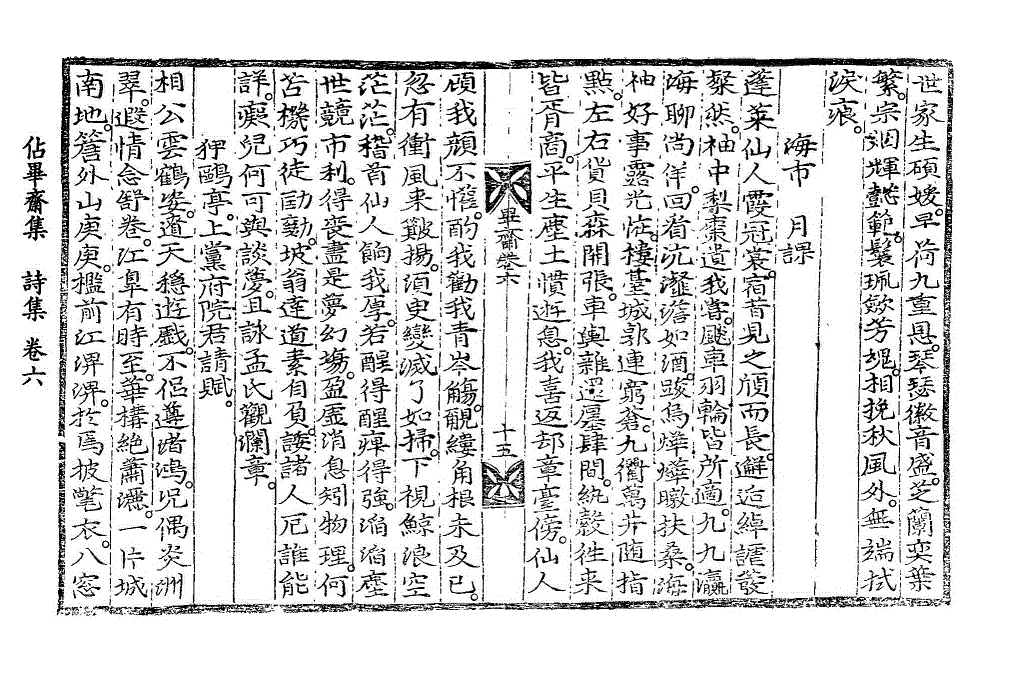 世家生碩媛。早荷九重恩。琴瑟徽音盛。芝蘭奕葉
繁。宗姻輝懿範。鬟珮歛芳魂。相挽秋風外。無端拭
淚痕。
海市 月課
蓬萊仙人霞冠裳。宿昔見之頎而長。邂逅綽䜧發
粲然。袖中梨棗遺我嘗。飈車羽輪皆所適。九九瀛
海聊尙徉。回看沆瀣澹如酒。踆烏燁燁暾扶桑。海
神好事露光怪。樓臺城郭連穹蒼。九衢萬井随指
點。左右貨貝森開張。車輿雜遝廛肆閙。紈縠徃来
皆胥商。平生塵土慣遊息。我喜返却章臺傍。仙人
頋我顔不懌。酌我勸我靑岑觴。覶縷角根未及已。
忽有衝風来簸揚。須臾變滅了如掃。下視鯨浪空
茫茫。稽首仙人餉我厚。若醒得醒痺得強。滔滔塵
世競市利。得喪盡是夢幻塲。盈虛消息矧物理。何
苦機巧徒劻勷。坡翁達道素自負。諉諸人厄誰能
詳。癡兒何可與談夢。且詠孟氏觀瀾章。
狎鷗亭。上黨府院君請賦。
相公雲鶴姿。適天穩遊戱。不侶遵渚鴻。況偶炎洲
翠。遐情念舒卷。江皐有時至。華構絶蕭灑。一片城
南地。簷外山庚庚。檻前江淠淠。於焉披氅衣。八窓
畢齋集卷六
十五
佔畢齋集 詩集 卷六